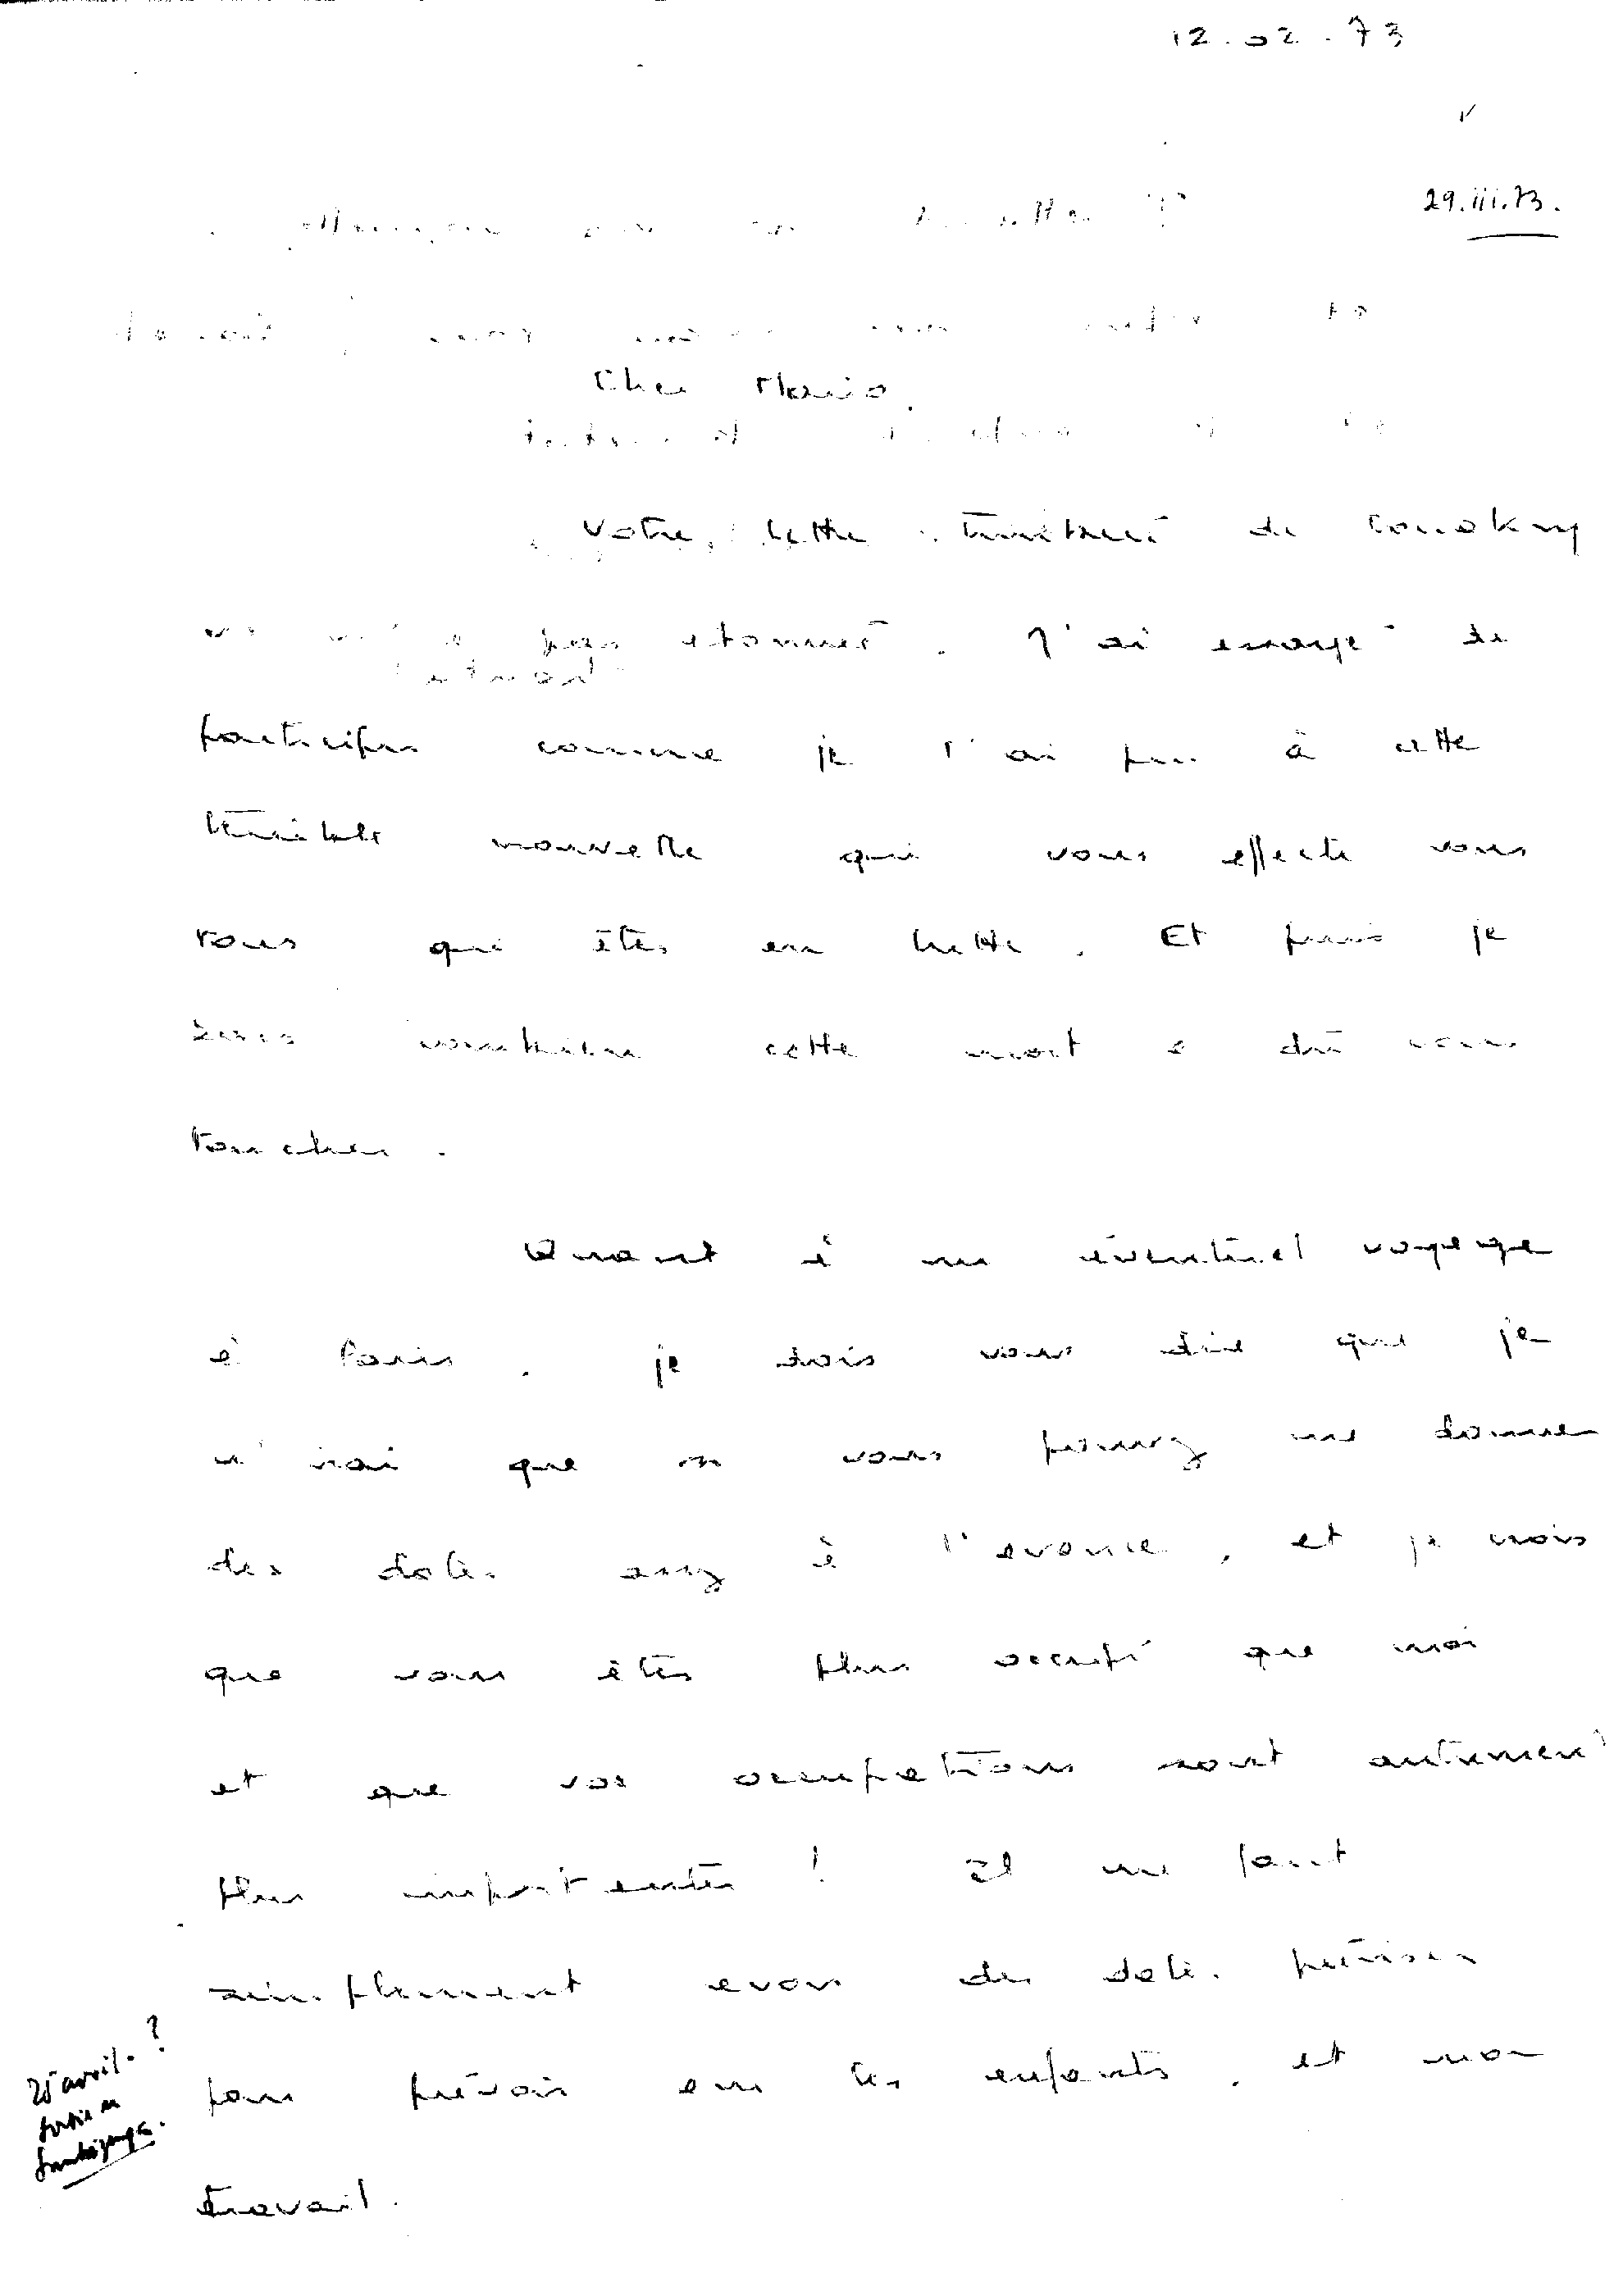 12.02.73
29.iii.73.
Cher Mario,
Votre lettre de Conakry
ne m'a pas étonnés. J'ai essayé de
participer comme je l'ai pu à cette
terrible nouvelle qui vous affecte vous
tous qui êtes en lutte. Et puis je
sais combien cette mort a dû vous
toucher.
Quant à un éventuel voyage
à Paris, je dois vous dire que je
n'irai que si vous pouvez me donner
des dates assez à l'avance, et je crois
que vous êtes plus occupé que moi
et que vos occupations sont autrement
plus importantes ! Il me faut
simplement avoir des dates précises
pour prévoir les enfants, et mon
travail.
25 avril. ?
sortie en